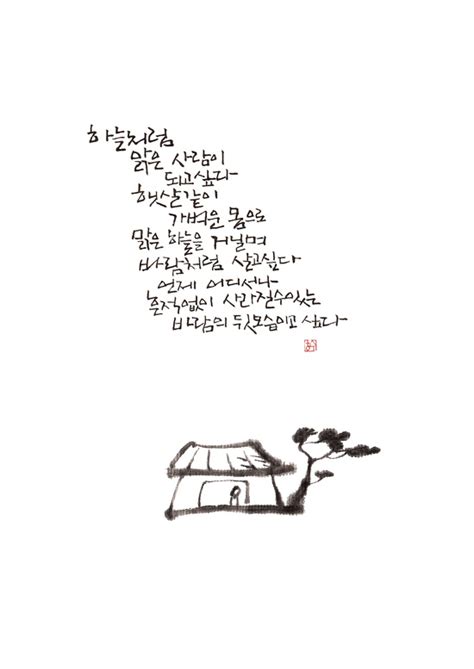 하늘처럼
맑은 사람이
되고싶다
햇살같이
가벼운 몸으로
맑은 하늘을 거닐며
바람처럼 살고싶다
언제 어디서나
흔적없이 사라질수있는
바람의 뒷모습이고 싶다